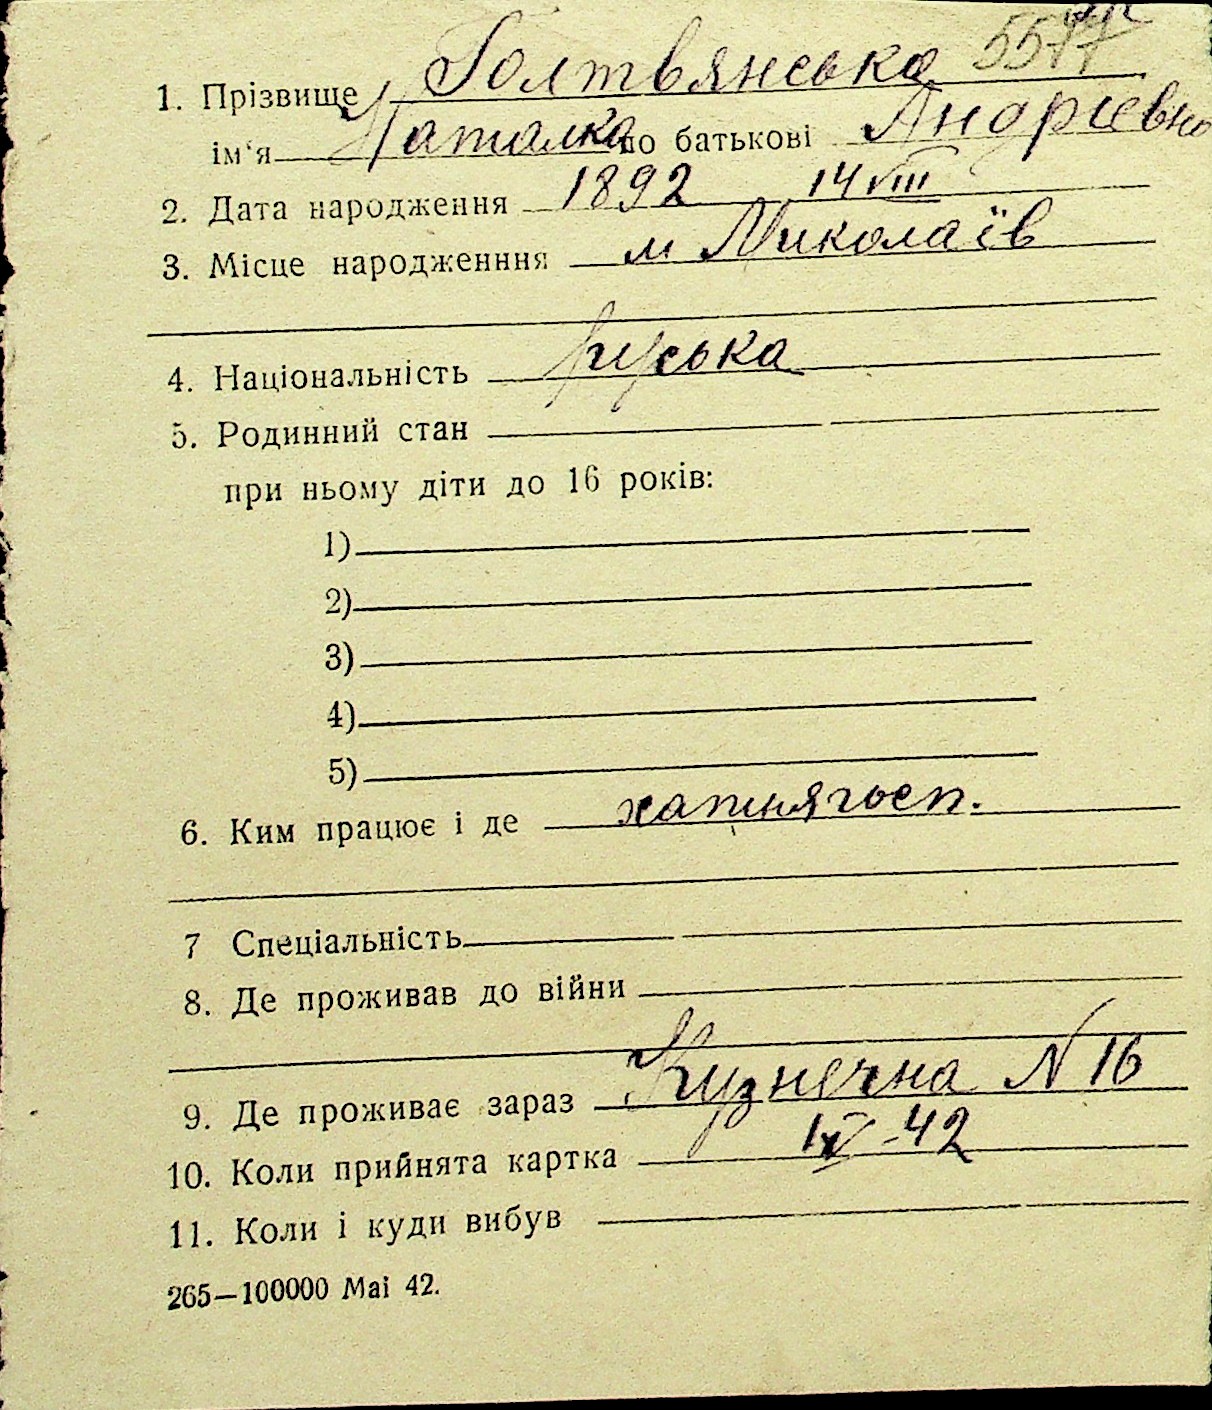 1. Прізвище Голтвянська 5577
ім‘я Наталка по батькові Андрієвно
2. Дата народження 1892 14 VIII
3. Місце народженння м Миколаїв
4. Національність руська
5. Родинний стан
при ньому діти до 16 років:
1)
2)
3)
4)
5)
6. Ким працює і де хатнягосп.
7 Спеціальність
8. Де проживав до війни
9. Де проживає зараз Кузнечна N 16
10. Коли прийнята картка IX - 42
11. Коли і куди вибув
265—100000 Mai 42.